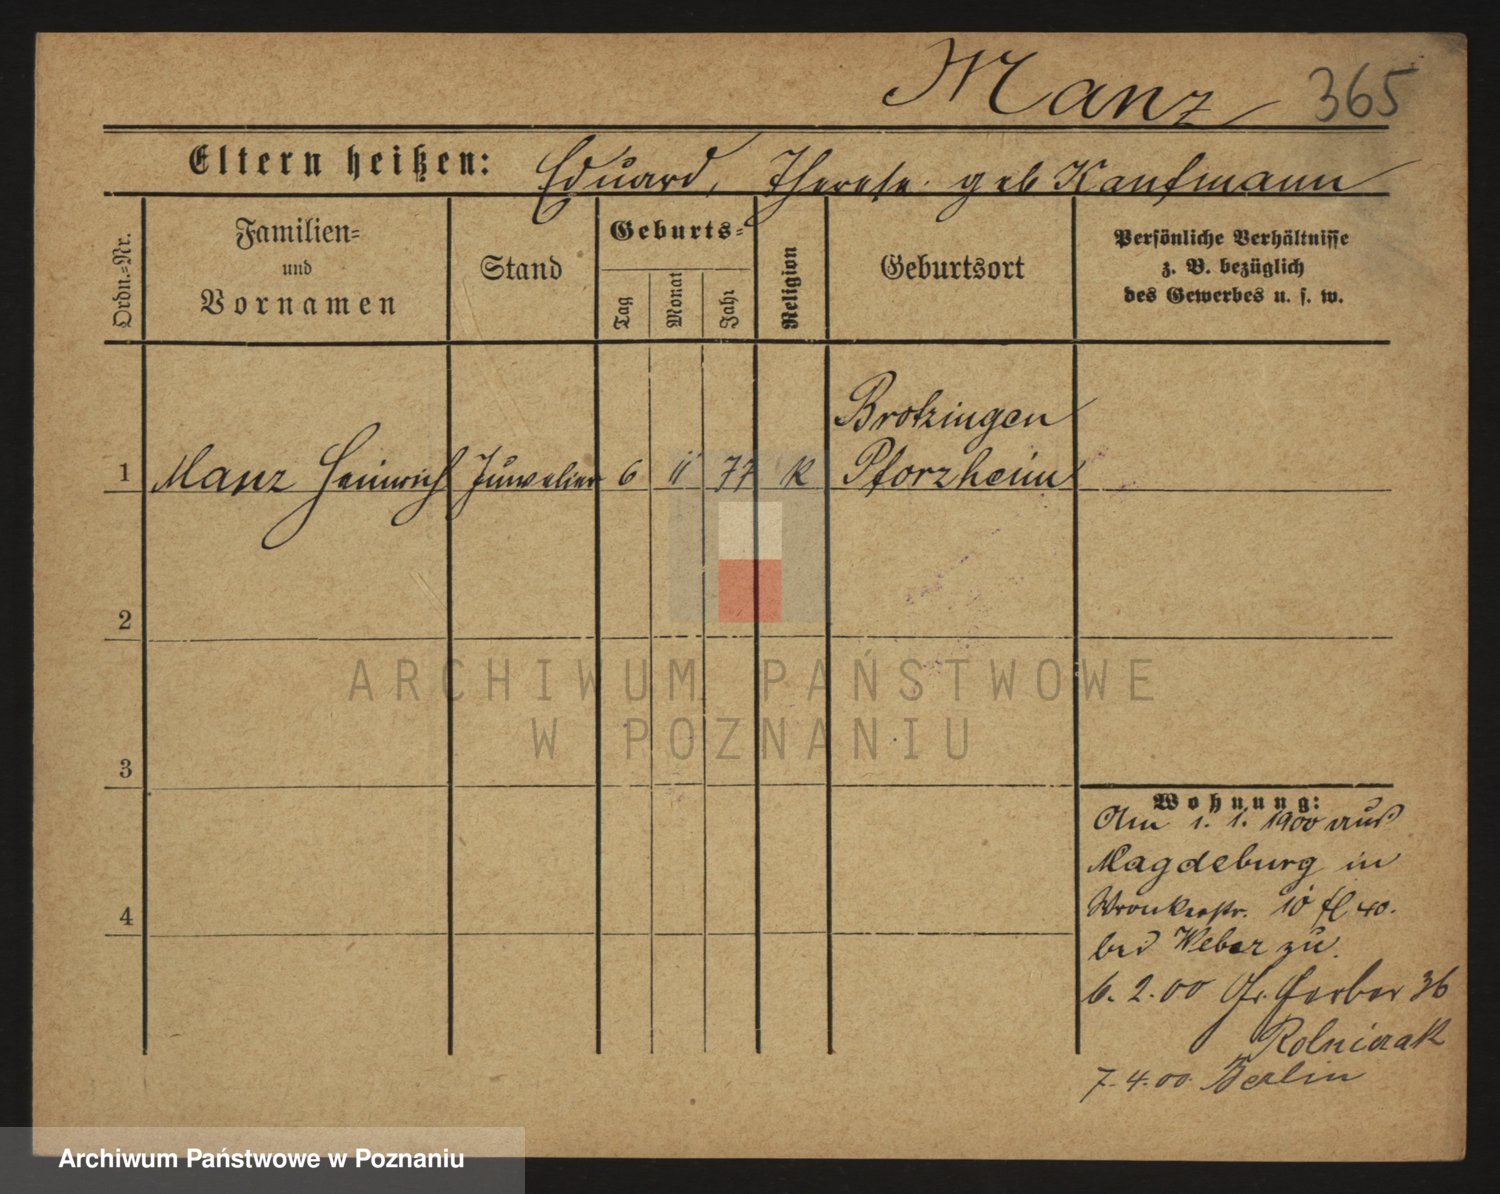 Manz 365
Eltern heißen: Eduard, Therese geb Kaufmann
Ordn.-Nr.
Familien-
und
Vornamen
Stand
Geburts-
Tag
Monat
Jahr
Religion
Geburtsort
Persönliche Verhältnisse
z. B. bezüglich
des Gewerbes u. s. w.
Brötzingen
1 Manz Heinrich Juwelier 6 11 77 k Pforzheim
2
ARCHIWUM PAŃSTWOWE
W POZNANIU
3
Wohnung:
Am 1. 1. 1900 aus
Magdeburg in
Wronkerstr. 10
bei Weber zu.
6. 2. 00 Gr. Gerber 36
Rolniczak
7. 4. 00. Berlin
4
Archiwum Państwowe w Poznaniu